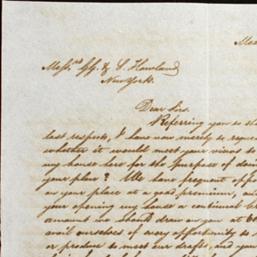 Mess.rs G. G. & S. Howland
New York.
Dear Sirs.
Referring you to
last respects, I have now merely to
whether it would meet your views to
my house here for the purpose of
your place? We have frequent
on your place at a good premium, and
your opening my house a continual
amount we should draw on you at 60
avail ourselves of every opportunity to
or produce to meet our drafts, and your